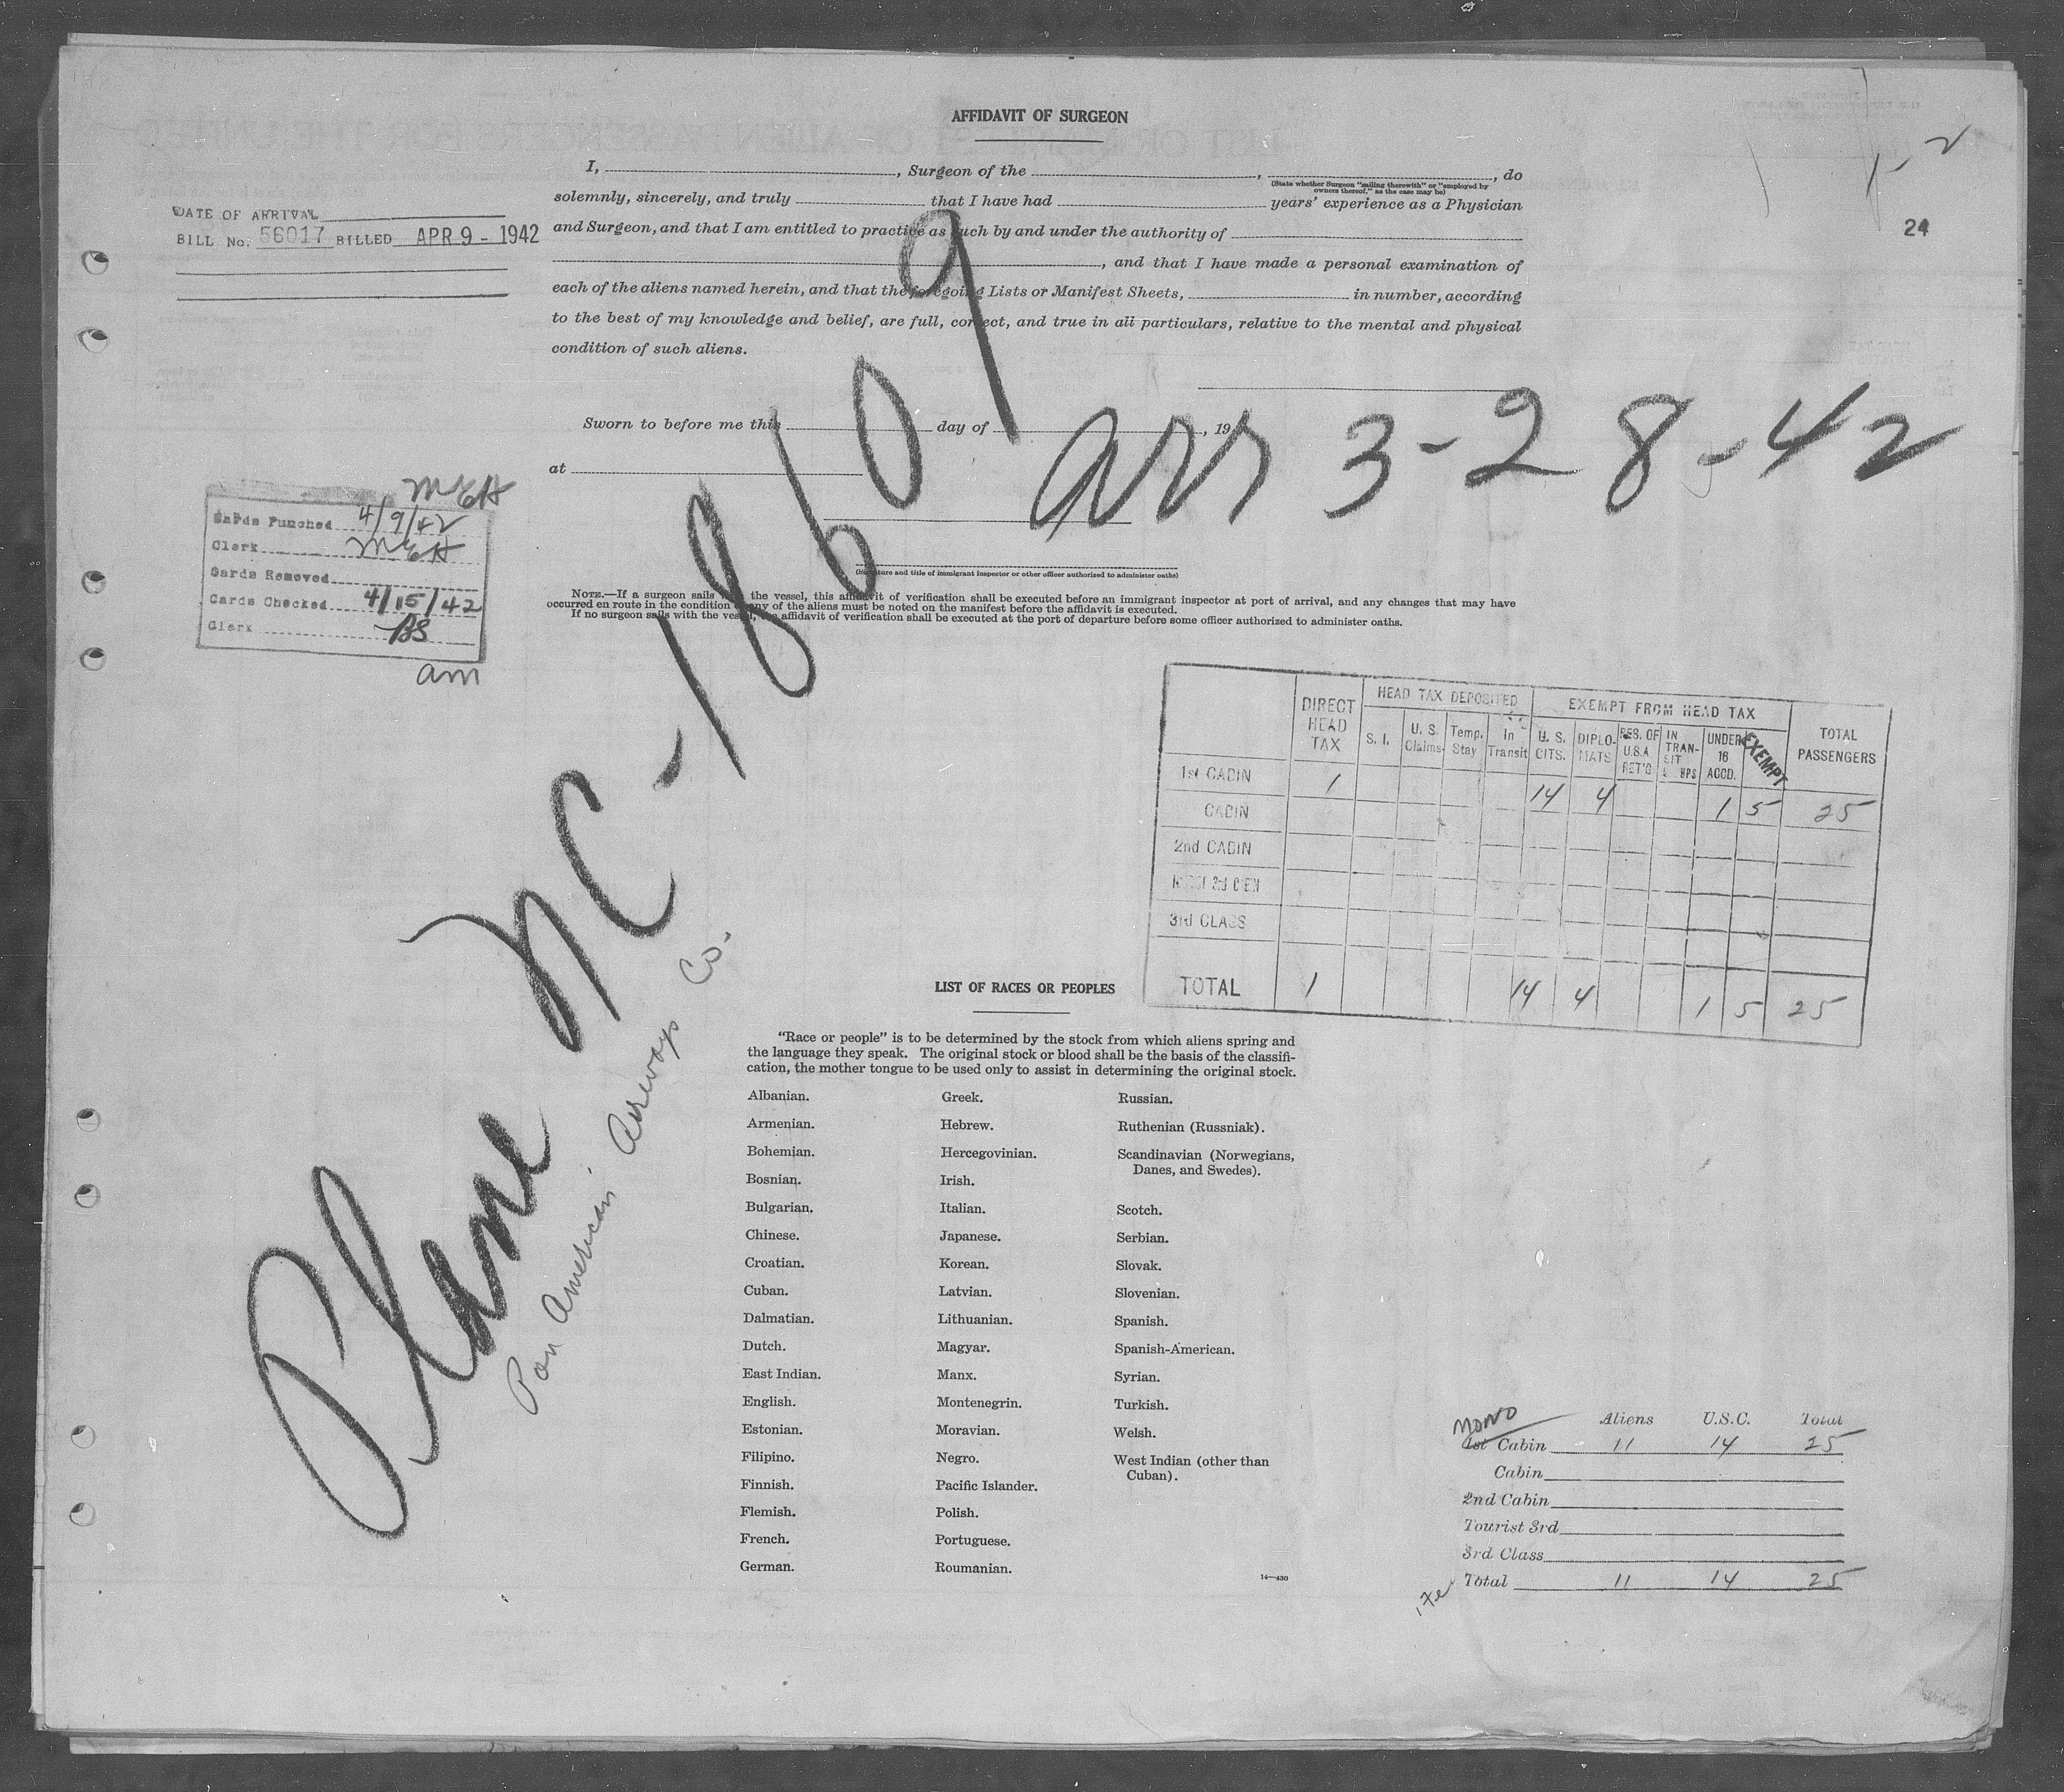 AFFIDAVIT OF SURGEON
I, , Surgeon of the , , do
(State whether Surgeon "sailing therewith" or "employed by owners thereof," as the case may be)
solemnly, sincerely, and truly that I have had years' experience as a Physician
and Surgeon, and that I am entitled to practice as such by and under the authority of
, and that I have made a personal examination of
each of the aliens named herein, and that the foregoing Lists or Manifest Sheets, in number, according
to the best of my knowledge and belief, are full, correct, and true in all particulars, relative to the mental and physical
condition of such aliens.
Sworn to before me this day of , 19
at
(Signature and title of immigrant inspector or other officer authorized to administer oaths)
NOTE.—If a surgeon sails with the vessel, this affidavit of verification shall be executed before an immigrant inspector at port of arrival, and any changes that may have
occurred en route in the condition of any of the aliens must be noted on the manifest before the affidavit is executed.
If no surgeon sails with the vessel, the affidavit of verification shall be executed at the port of departure before some officer authorized to administer oaths.
1-2
24
DATE OF ARRIVAL
BILL No. 56017 BILLED APR 9 - 1942
arr 3-28-42
Plane NC-18609
Pan American Airways Co.
MEH
Cards Punched 4/9/42
Clerk MEH
Cards Removed
Cards Checked 4/15/42
Clerk BS
am
DIRECT HEAD TAX
HEAD TAX DEPOSITED
S. I.
U. S. Claims
Temp. Stay
In Transit
EXEMPT FROM HEAD TAX
U. S. CITS.
DIPLOMATS
RES. OF U.S.A. RET'G
IN TRANSIT
UNDER 16 ACCD.
EXEMPT
TOTAL PASSENGERS
1st CABIN 1 14 4 1 5 25
CABIN
2nd CABIN
3rd CLASS
TOTAL 1 14 4 1 5 25
LIST OF RACES OR PEOPLES
"Race or people" is to be determined by the stock from which aliens spring and
the language they speak. The original stock or blood shall be the basis of the classifi-
cation, the mother tongue to be used only to assist in determining the original stock.
Albanian.
Armenian.
Bohemian.
Bosnian.
Bulgarian.
Chinese.
Croatian.
Cuban.
Dalmatian.
Dutch.
East Indian.
English.
Estonian.
Filipino.
Finnish.
Flemish.
French.
German.
Greek.
Hebrew.
Hercegovinian.
Irish.
Italian.
Japanese.
Korean.
Latvian.
Lithuanian.
Magyar.
Manx.
Montenegrin.
Moravian.
Negro.
Pacific Islander.
Polish.
Portuguese.
Roumanian.
Russian.
Ruthenian (Russniak).
Scandinavian (Norwegians,
Danes, and Swedes).
Scotch.
Serbian.
Slovak.
Slovenian.
Spanish.
Spanish-American.
Syrian.
Turkish.
Welsh.
West Indian (other than
Cuban).
14—430
Aliens U.S.C. Total
1st Cabin 11 14 25
Cabin
2nd Cabin
Tourist 3rd
3rd Class
Total 11 14 25